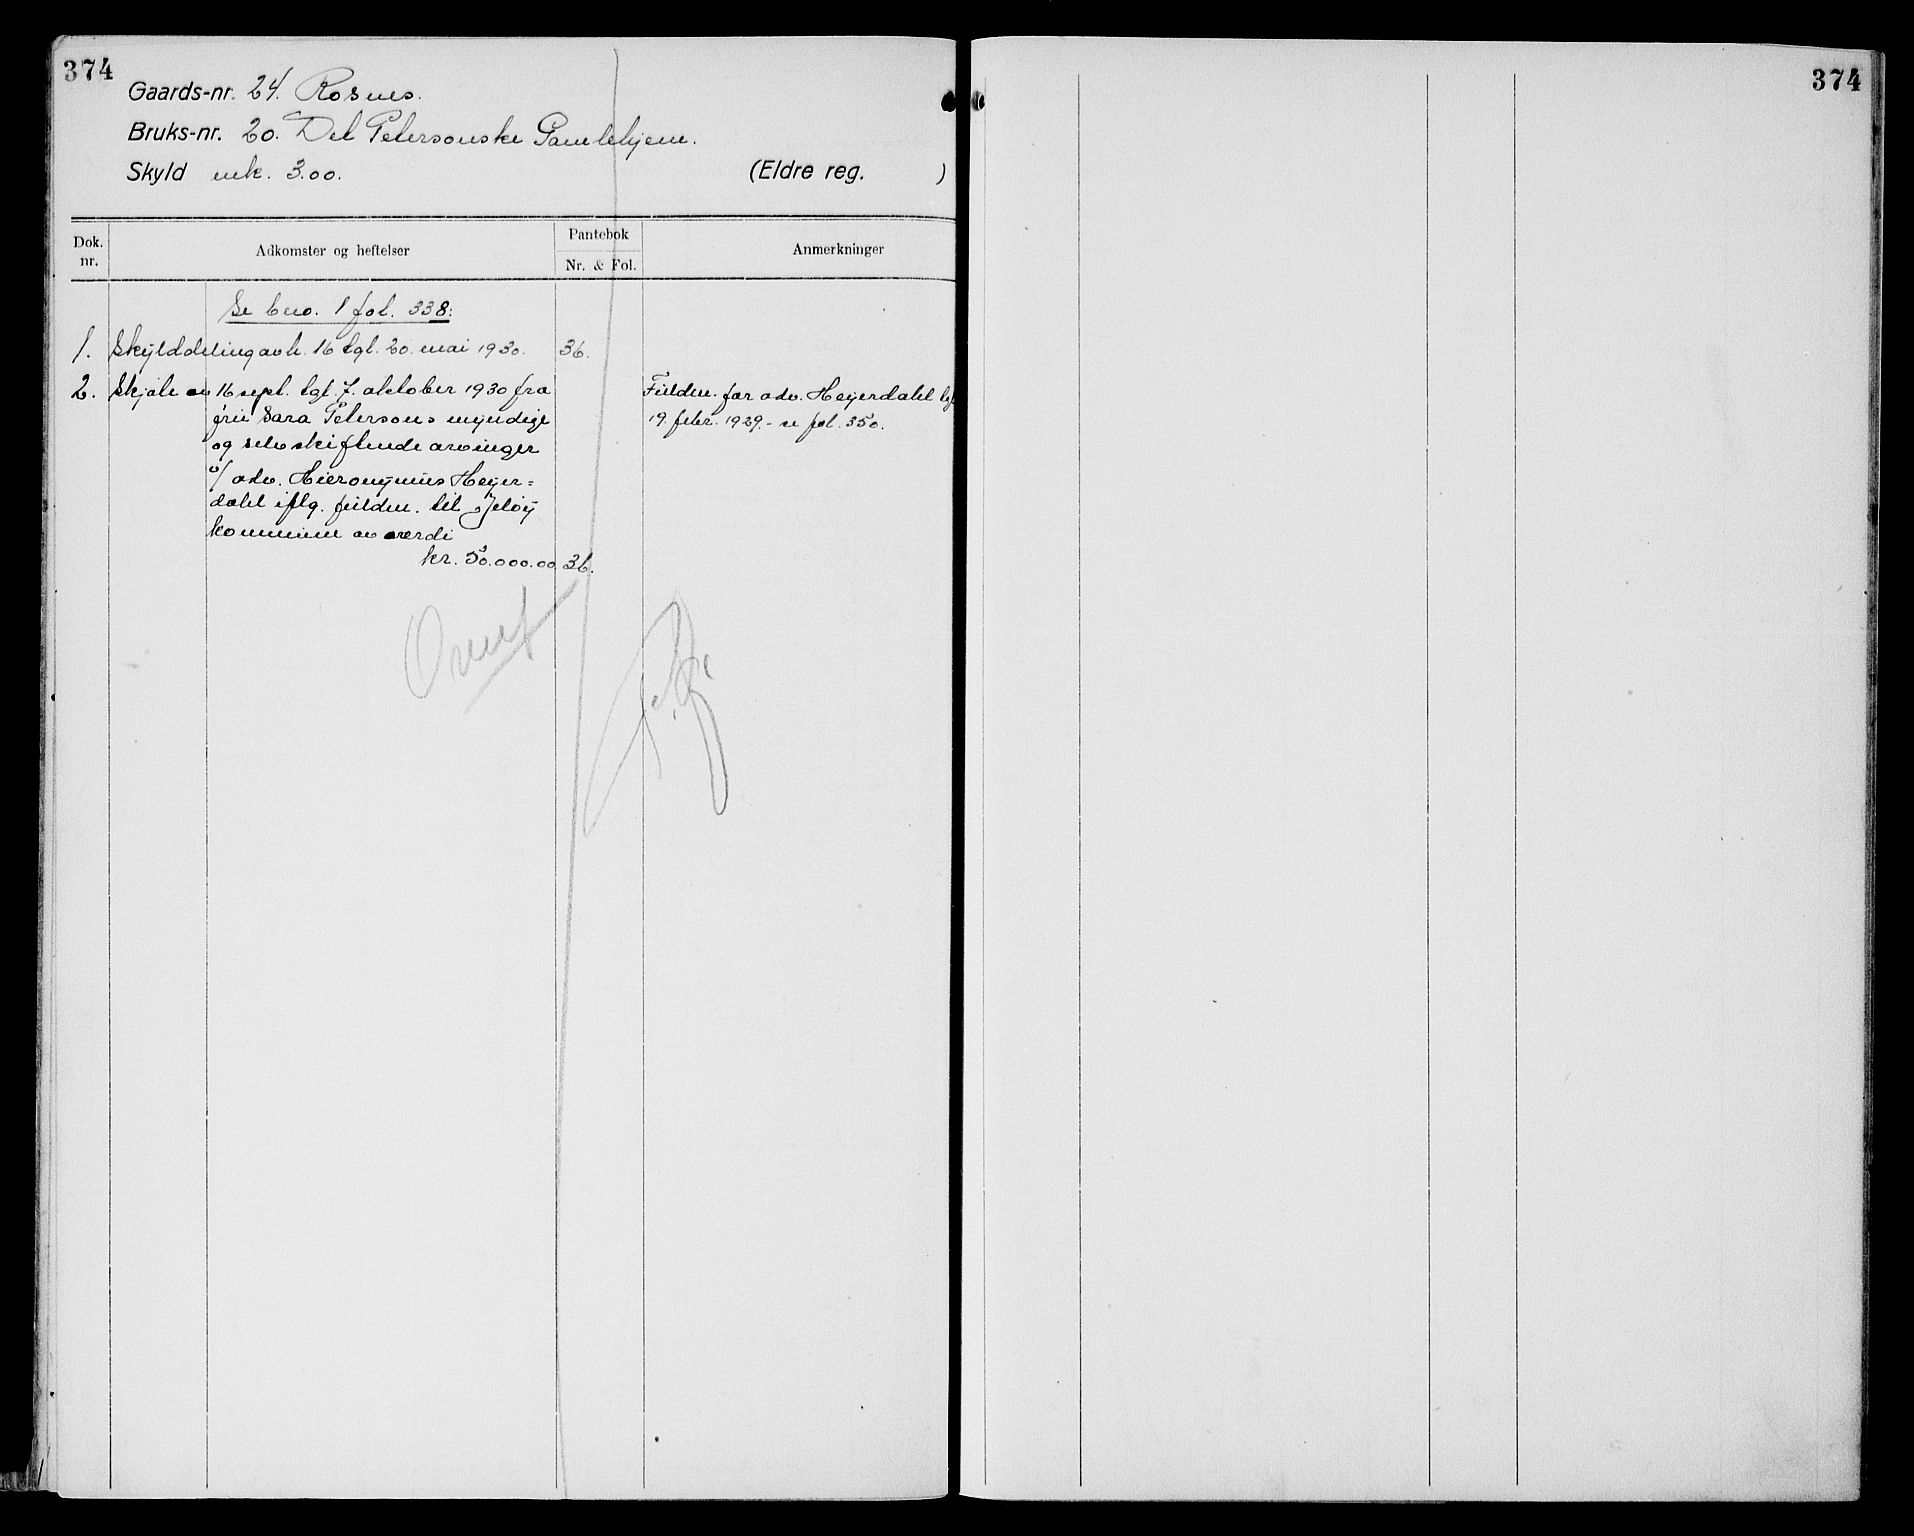 374
Gaards-nr. 24. Rosnes.
Bruks-nr. 20. Det Petersonske Gamlehjem.
Skyld mk. 3.00. (Eldre reg. )
Dok. nr.
Adkomster og heftelser
Pantebok
Nr. & Fol.
Anmerkninger
Se bno. 1 fol. 338:
1. Skylddeling avh. 16 tgl. 20. mai 1930. 36.
2. Skjøte av 16 sept. tgl. 7. oktober 1930 fra
fru Sara Petersons myndige
og selvskiftende arvinger
v/ adv. Hieronymus Heyer=
dahl iflg. fuldm. til Jeløy
kommune av verdi
kr. 50.000.00. 36.
Fuldm. for adv. Heyerdahl tgl
19. febr. 1929. - se fol. 350.
Overf
374